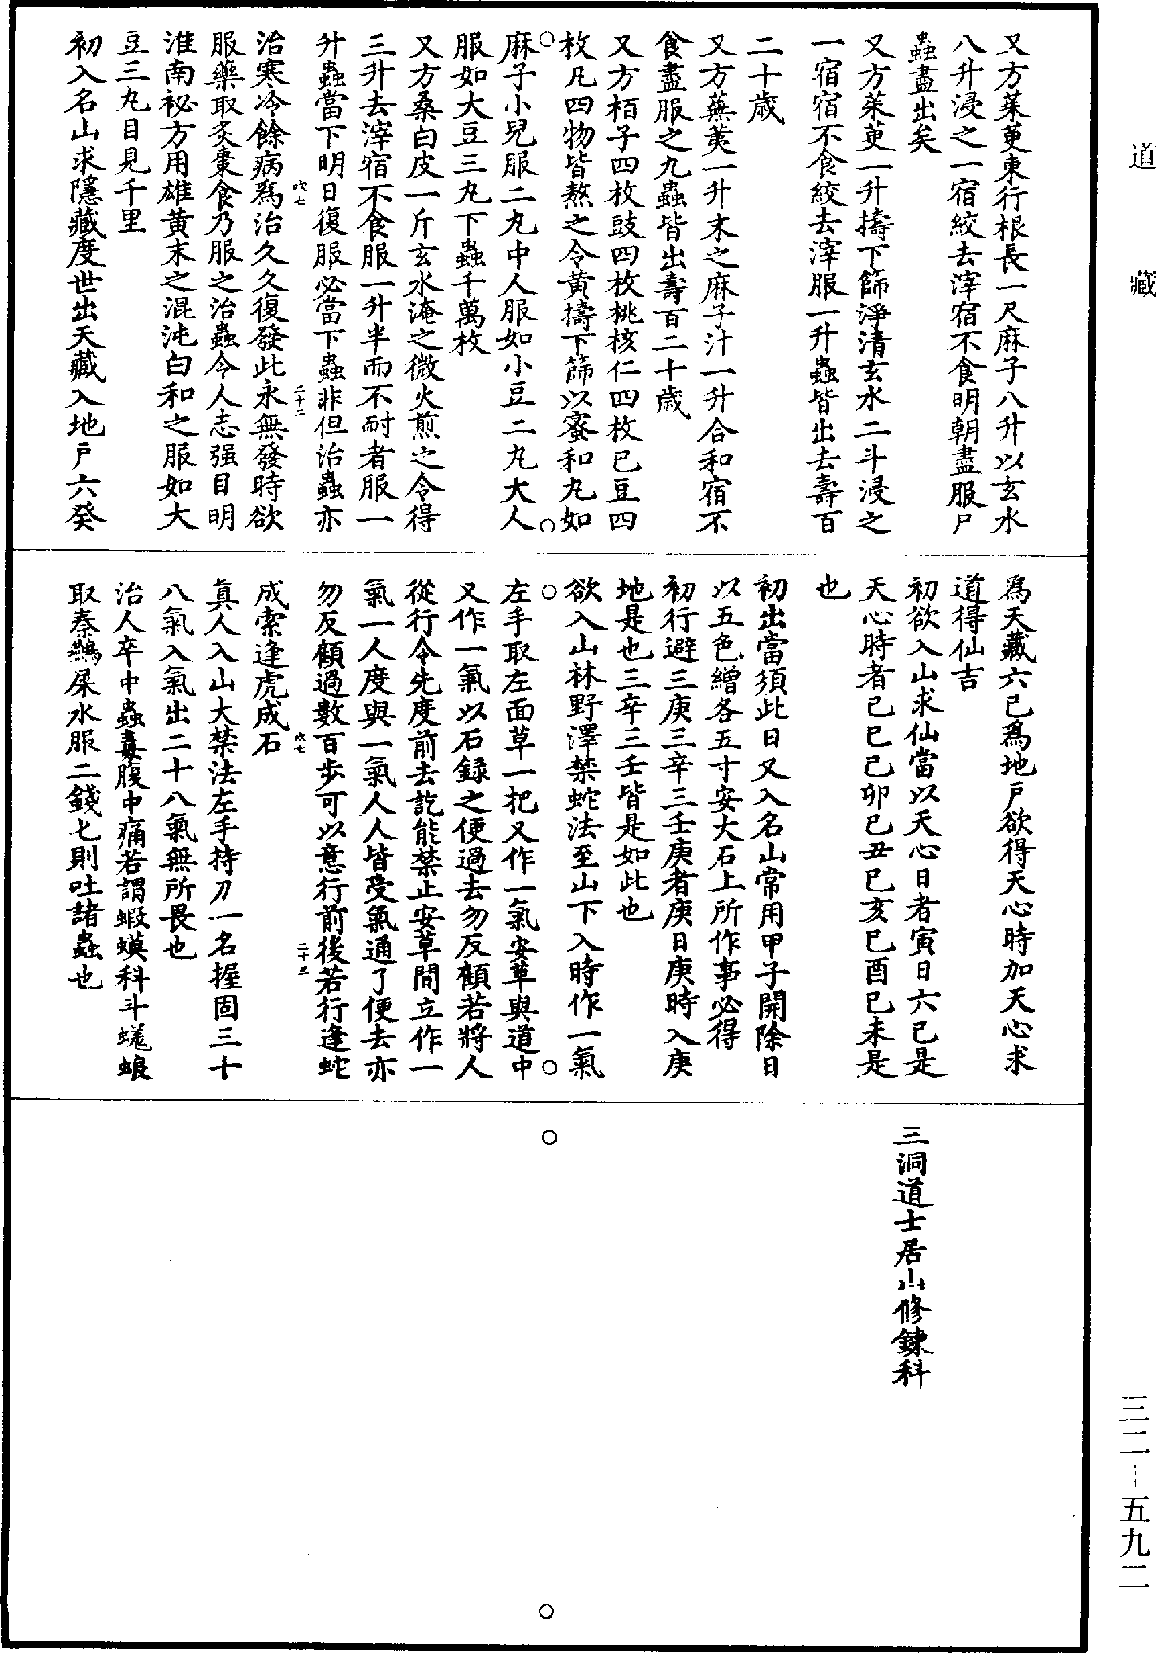 道藏
又方茱萸東行根長一尺麻子八升以玄水
八升浸之一宿絞去滓宿不食明朝盡服尸
蟲盡出矣
又方茱萸一升擣下篩淨清玄水二斗浸之
一宿宿不食絞去滓服一升蟲皆出去壽百
二十歲
又方蕪荑一升末之麻子汁一升合和宿不
食盡服之九蟲皆出壽百二十歲
又方栢子四枚豉四枚桃核仁四枚巴豆四
枚凡四物皆熬之令黃擣下篩以蜜和丸如
麻子小兒服二丸中人服如小豆二丸大人
服如大豆三丸下蟲千萬枚
又方桑白皮一斤玄水淹之微火煎之令得
三升去滓宿不食服一升半而不耐者服一
升蟲當下明日復服必當下蟲非但治蟲亦
治寒冷餘病為治久久復發此永無發時欲
服藥取炙棗食乃服之治蟲令人志強目明
淮南祕方用雄黃末之混沌白和之服如大
豆三丸目見千里
初入名山求隱藏度世出天藏入地戶六癸
為天藏六己為地戶欲得天心時加天心求
道得仙吉
初欲入山求仙當以天心日者寅日六己是
天心時者己巳己卯己丑己亥己酉己未是
也
初出當須此日又入名山常用甲子開除日
以五色繒各五寸安大石上所作事必得
初行避三庚三辛三壬庚者庚日庚時入庚
地是也三辛三壬皆是如此也
欲入山林野澤禁蛇法至山下入時作一氣
左手取左面草一把又作一氣安草與道中
又作一氣以石鎮之便過去勿反顧若將人
從行令先度前去訖能禁止安草間立作一
氣一人度與一氣人人皆受氣通了便去亦
勿反顧過數百步可以意行前後若行逢蛇
成索逢虎成石
真人入山大禁法左手持刀一名握固三十
八氣入氣出二十八氣無所畏也
治人卒中蟲毒腹中痛若謂蝦蟆科斗蟻蜋
取秦鵲屎水服二錢匕則吐諸蟲也
三洞道士居山修鍊科
三二—五九二